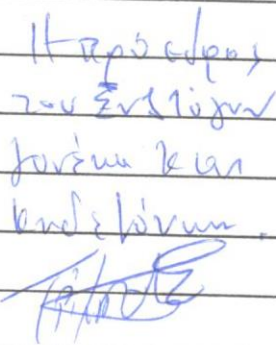 Η πρόεδρος
του Συλλόγου
Γονέων και
Κηδεμόνων.